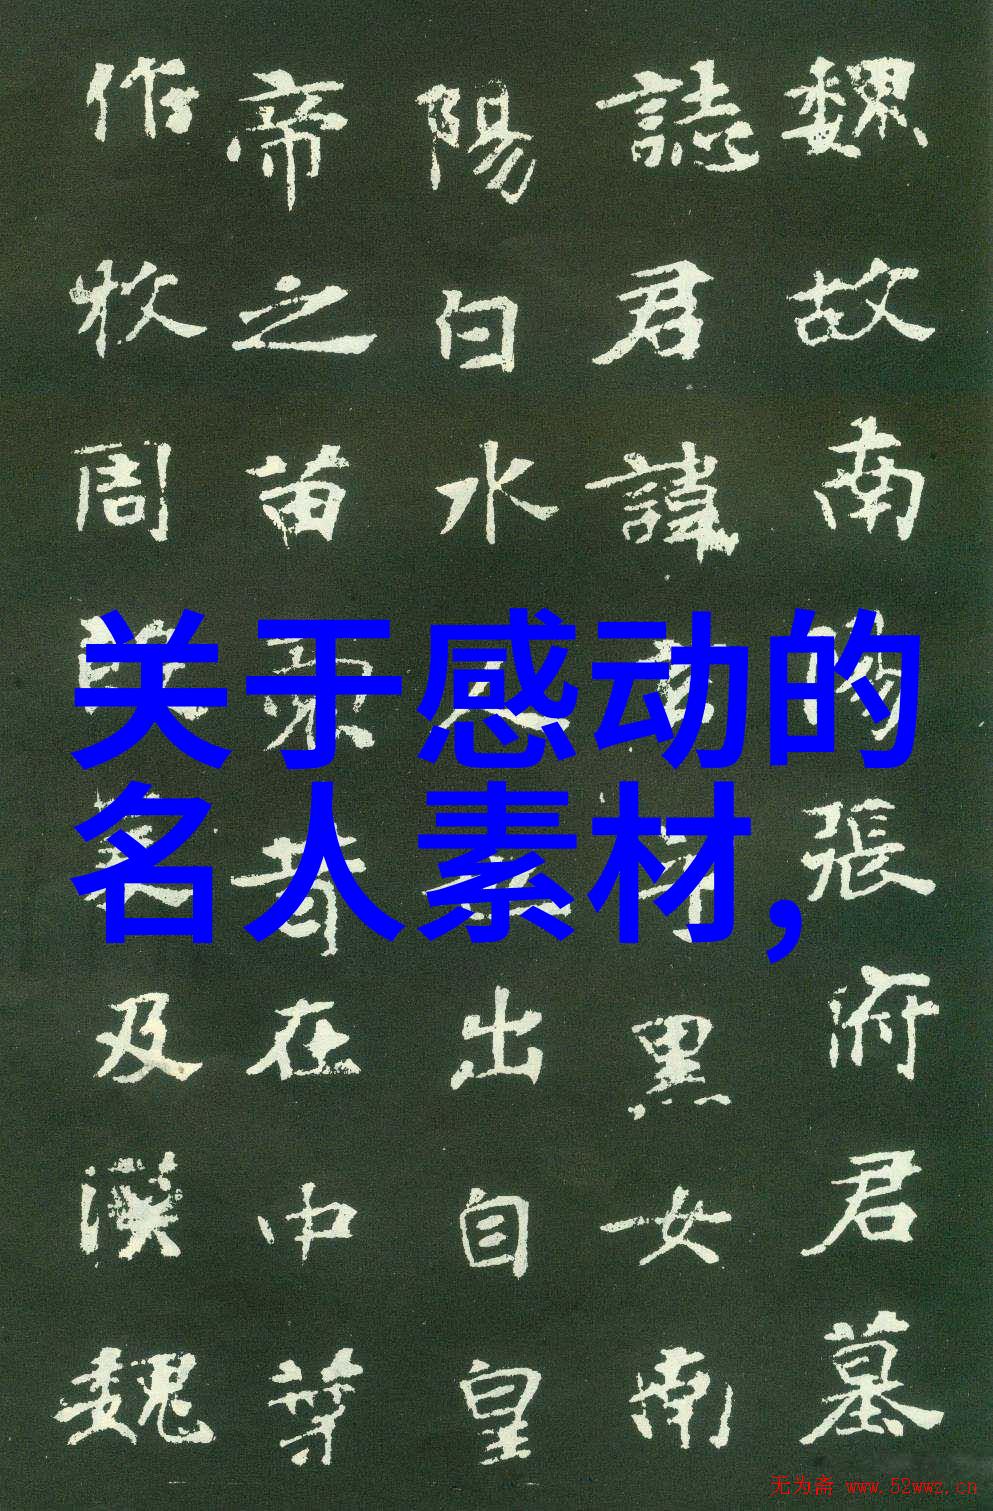 魏故南張府君墓
誌君諱黑女南
陽白水人出自皇
帝之苗昔在中
作牧周及漢魏
关于感动的
名人素材，
无为斋 www.52wwz.cn